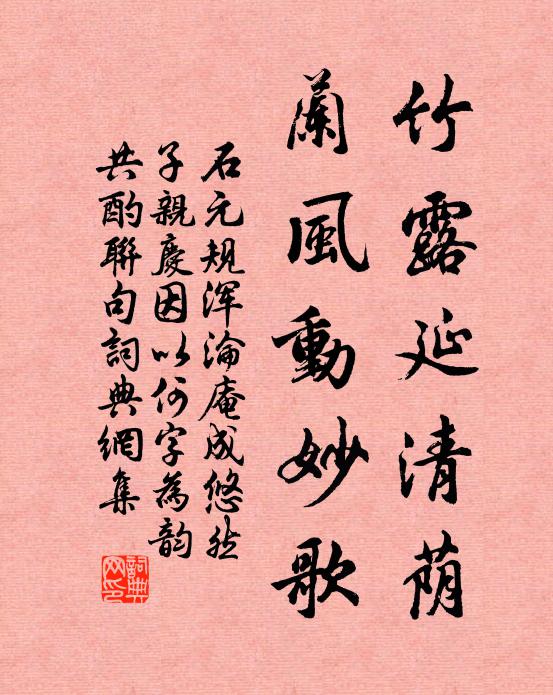 竹露延清荫
蘭風動妙歌
石元規浑淪庵成悠然
子親慶因以何字為韵
共酌聯句詞典網集
詞典網印